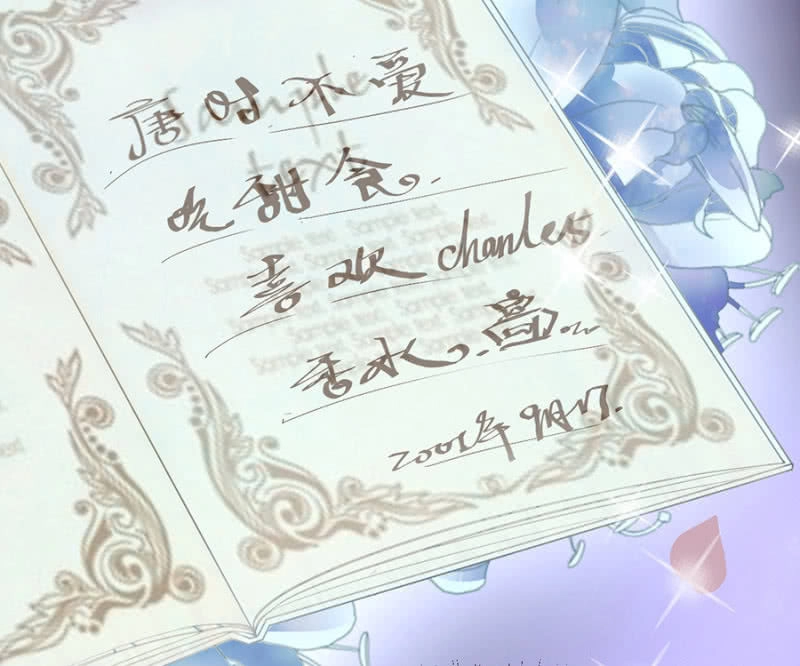 唐时不爱
吃甜食。
喜欢 charles
香水。
2001年9月17.
Sample
text
Sample text. Sample text.
Sample text. Sample text.
Sample text. Sample text.
Sample text. Sample text.